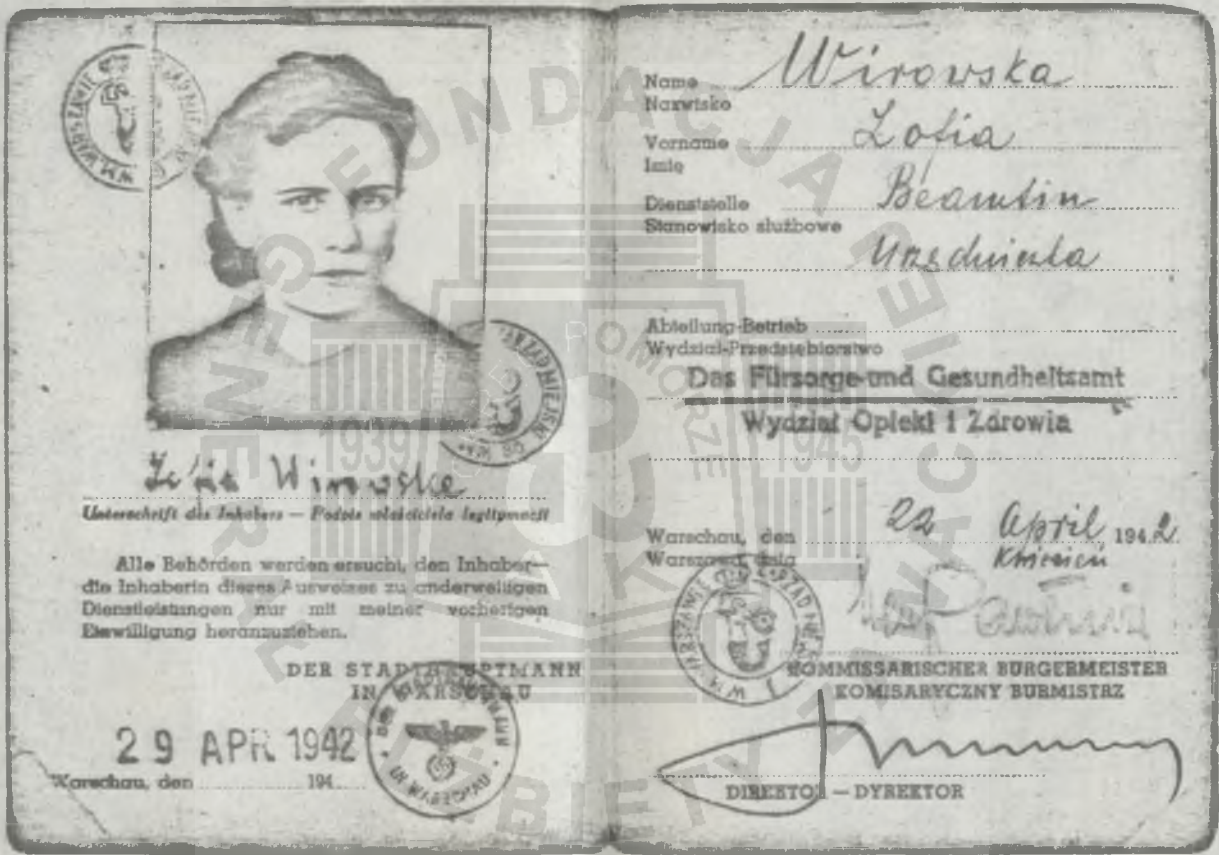 Zofja Wirowska
Unterschrift des Inhabers — Podpis właściciela legitymacji
Alle Behörden werden ersucht, den Inhaber—
die Inhaberin dieses Ausweises zu anderweitigen
Dienstleistungen nur mit meiner vorherigen
Einwilligung heranzuziehen.
DER STADTHAUPTMANN
IN WARSCHAU
29 APR 1942
Warschau, den 194
DER STADTHAUPTMANN
IN WARSCHAU
Name Wirowska
Nazwisko
Vorname Zofia
Imię
Dienststelle Beamtin
Stanowisko służbowe
Urzędniczka
Abteilung-Betrieb
Wydział-Przedsiębiorstwo
Das Fürsorge-und Gesundheitsamt
Wydział Opieki i Zdrowia
Warschau, den 22 April 1942
Warszawa, dnia Kwiecień
KOMMISSARISCHER BÜRGERMEISTER
KOMISARYCZNY BURMISTRZ
DIREKTOR — DYREKTOR
FUNDACJA GENERAŁ
POMORZE
1939 1945
AK